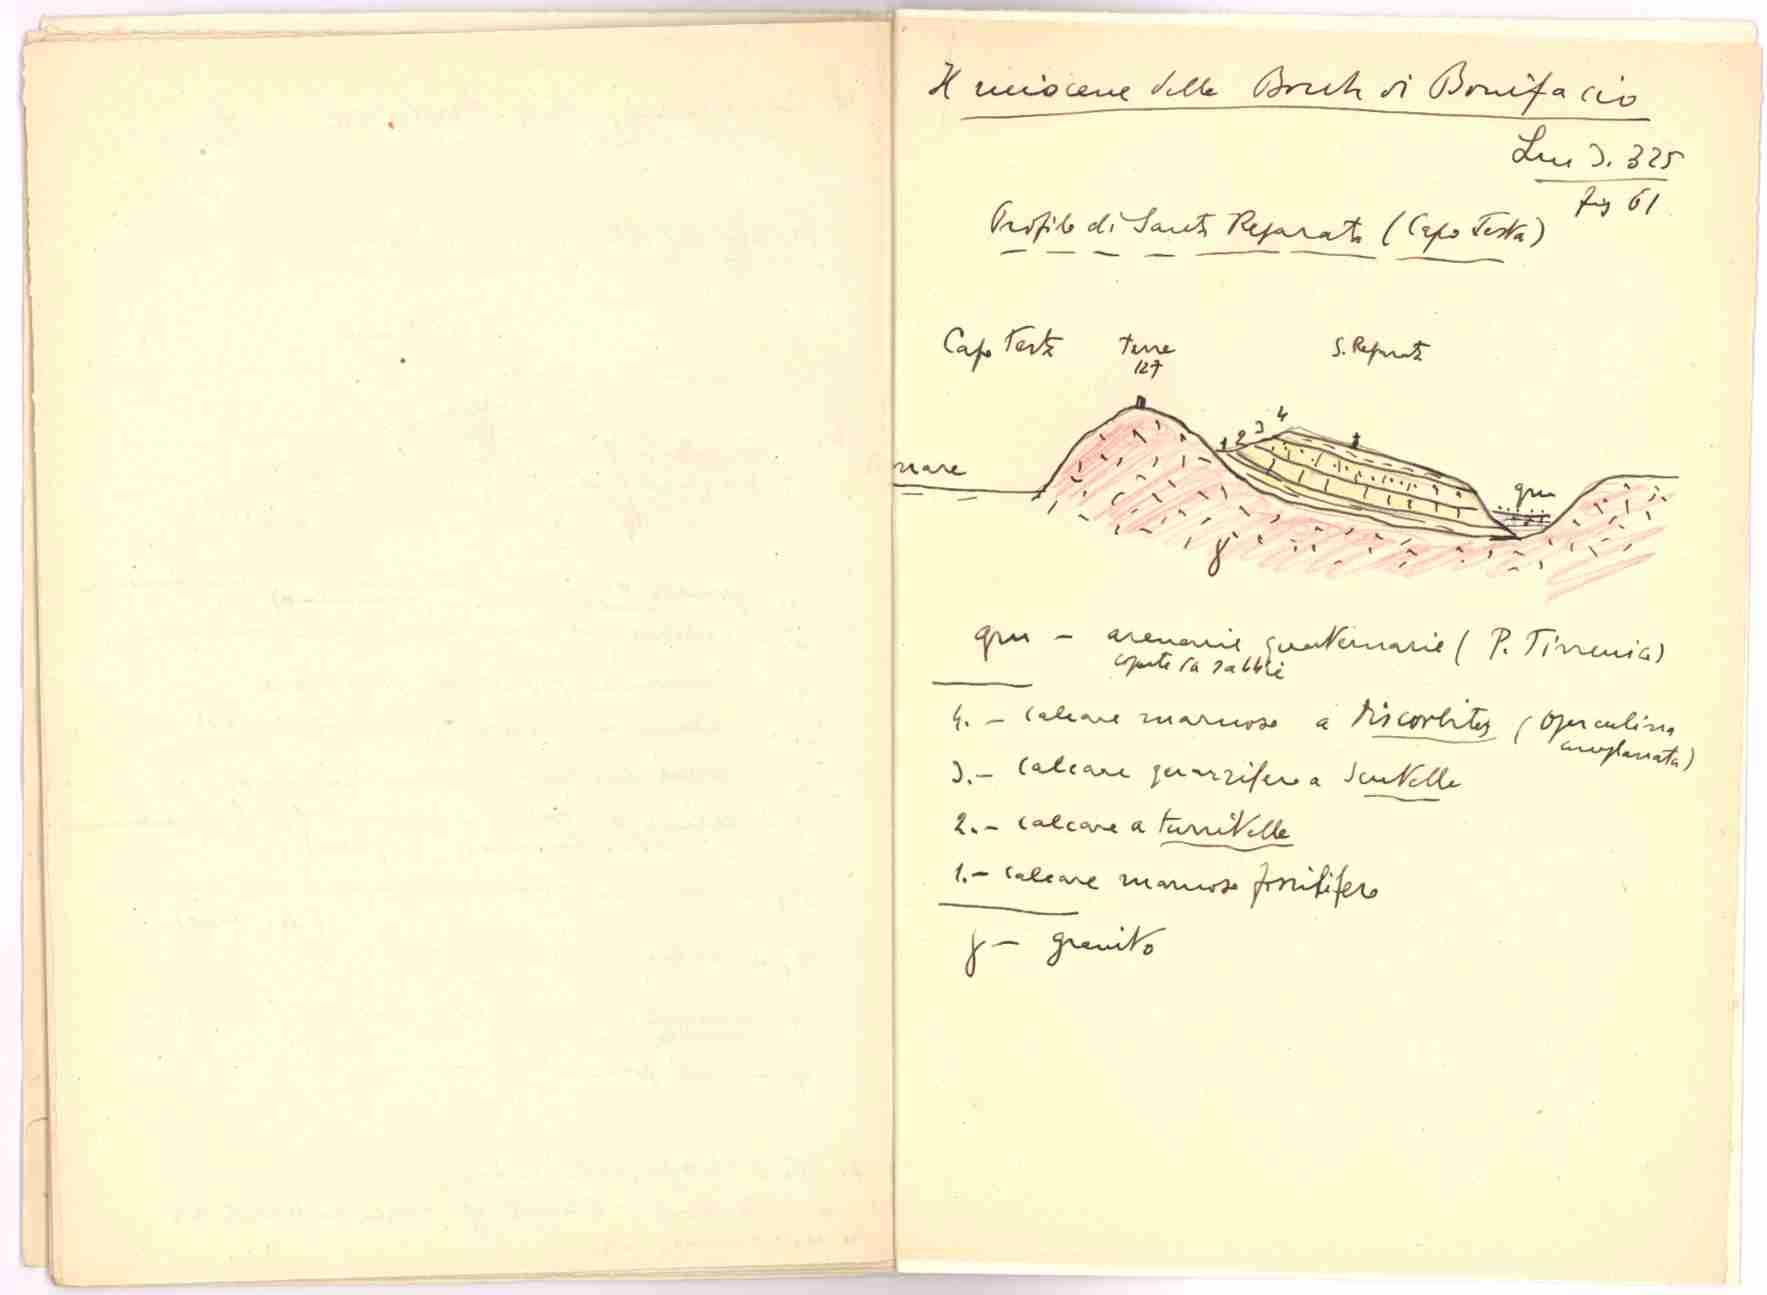 Il miocene delle Bocche di Bonifacio
325
fig 61
Profilo di Santa Reparata (Capo Testa)
Capo Testa
Torre
127
S. Reparata
mare
1 2 3 4
qm
γ
qm - arenarie quaternarie (P. Tirrenia)
coperte da sabbie
4. - calcare marnoso a Discorbites (Operculina
complanata)
3. - calcare quarzifero a Scutelle
2. - calcare a turritelle
1. - calcare marnoso fossilifero
γ - granito